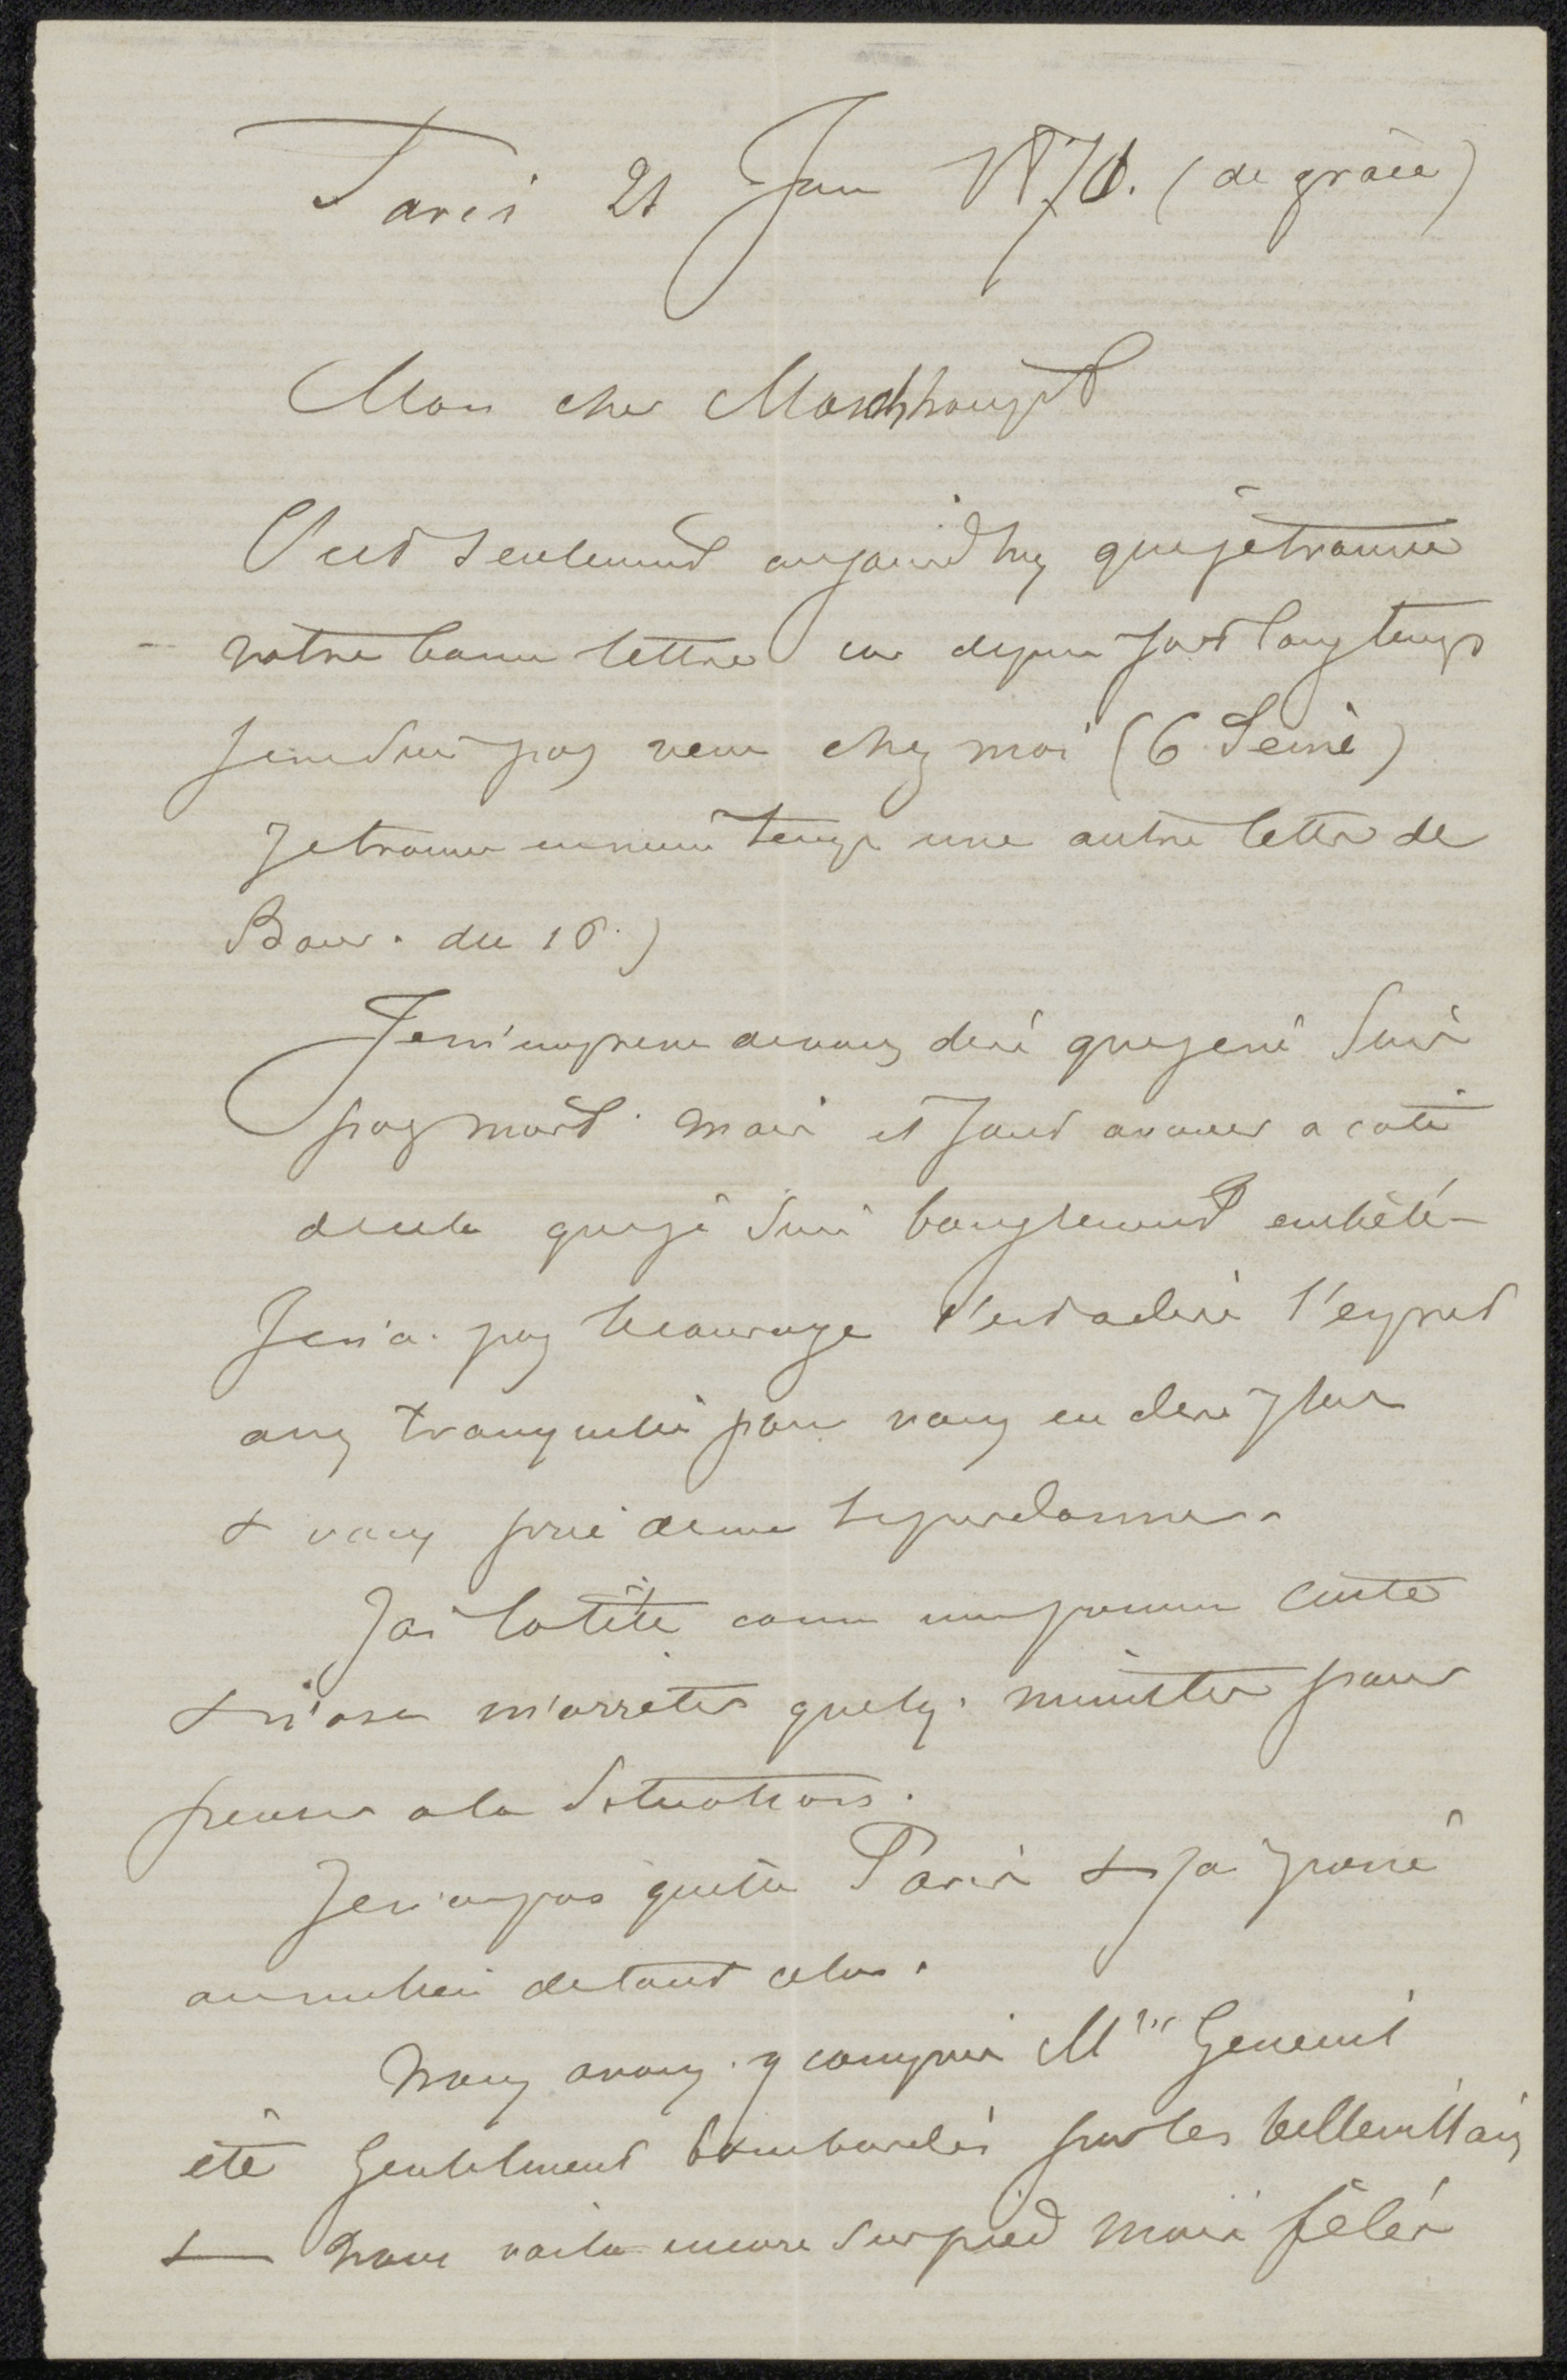 Paris 21 Jun 1871. (de grâce)
Mon cher Maschhoupt
C'est seulement aujourdhuy que je trouve
votre bonne lettre car depuis fort longtemps
je ne suis pas venu chez moi (6 Seine)
Je trouve en meme temps une autre lettre de
Bauer. du 16.)
Je m'empresse de vous dire que je ne suis
pas mort. mais il faut avouer a coté
de cela que je suis bougrement embêté -
Je n'ai pas le courage c'est a dire l'esprit
assez tranquille pour vous en dire plus
& vous prie de me le pardonner.
J'ai la tête comme une pomme cuite
& n'ose m'arrêter quelq. minutes pour
penser a la situation.
Je n'ai pas quitté Paris & j'ai passé
au milieu de tout cela.
Nous avons. y compris Mme
été gentilment bombardés par les bellevillois
& nous voila encore sur pied mais fêlés